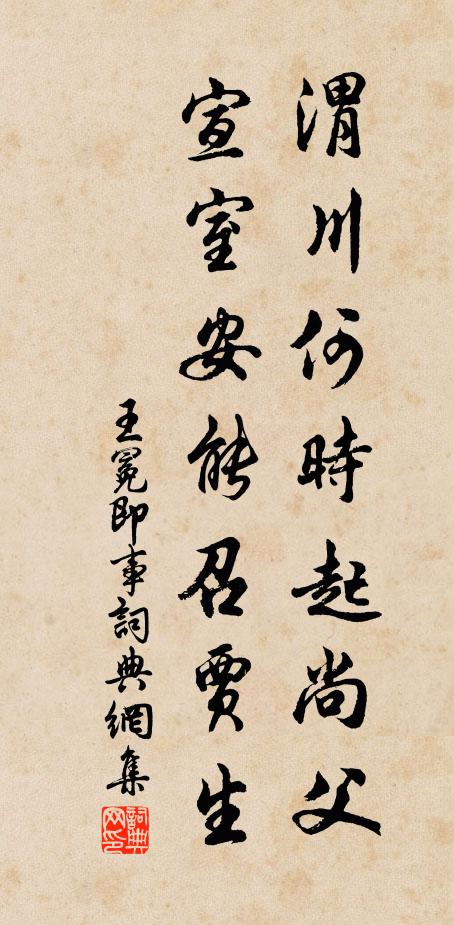 渭川何時起尚父
宣室安能召賈生
王冕即事詞典網集
詞典網印